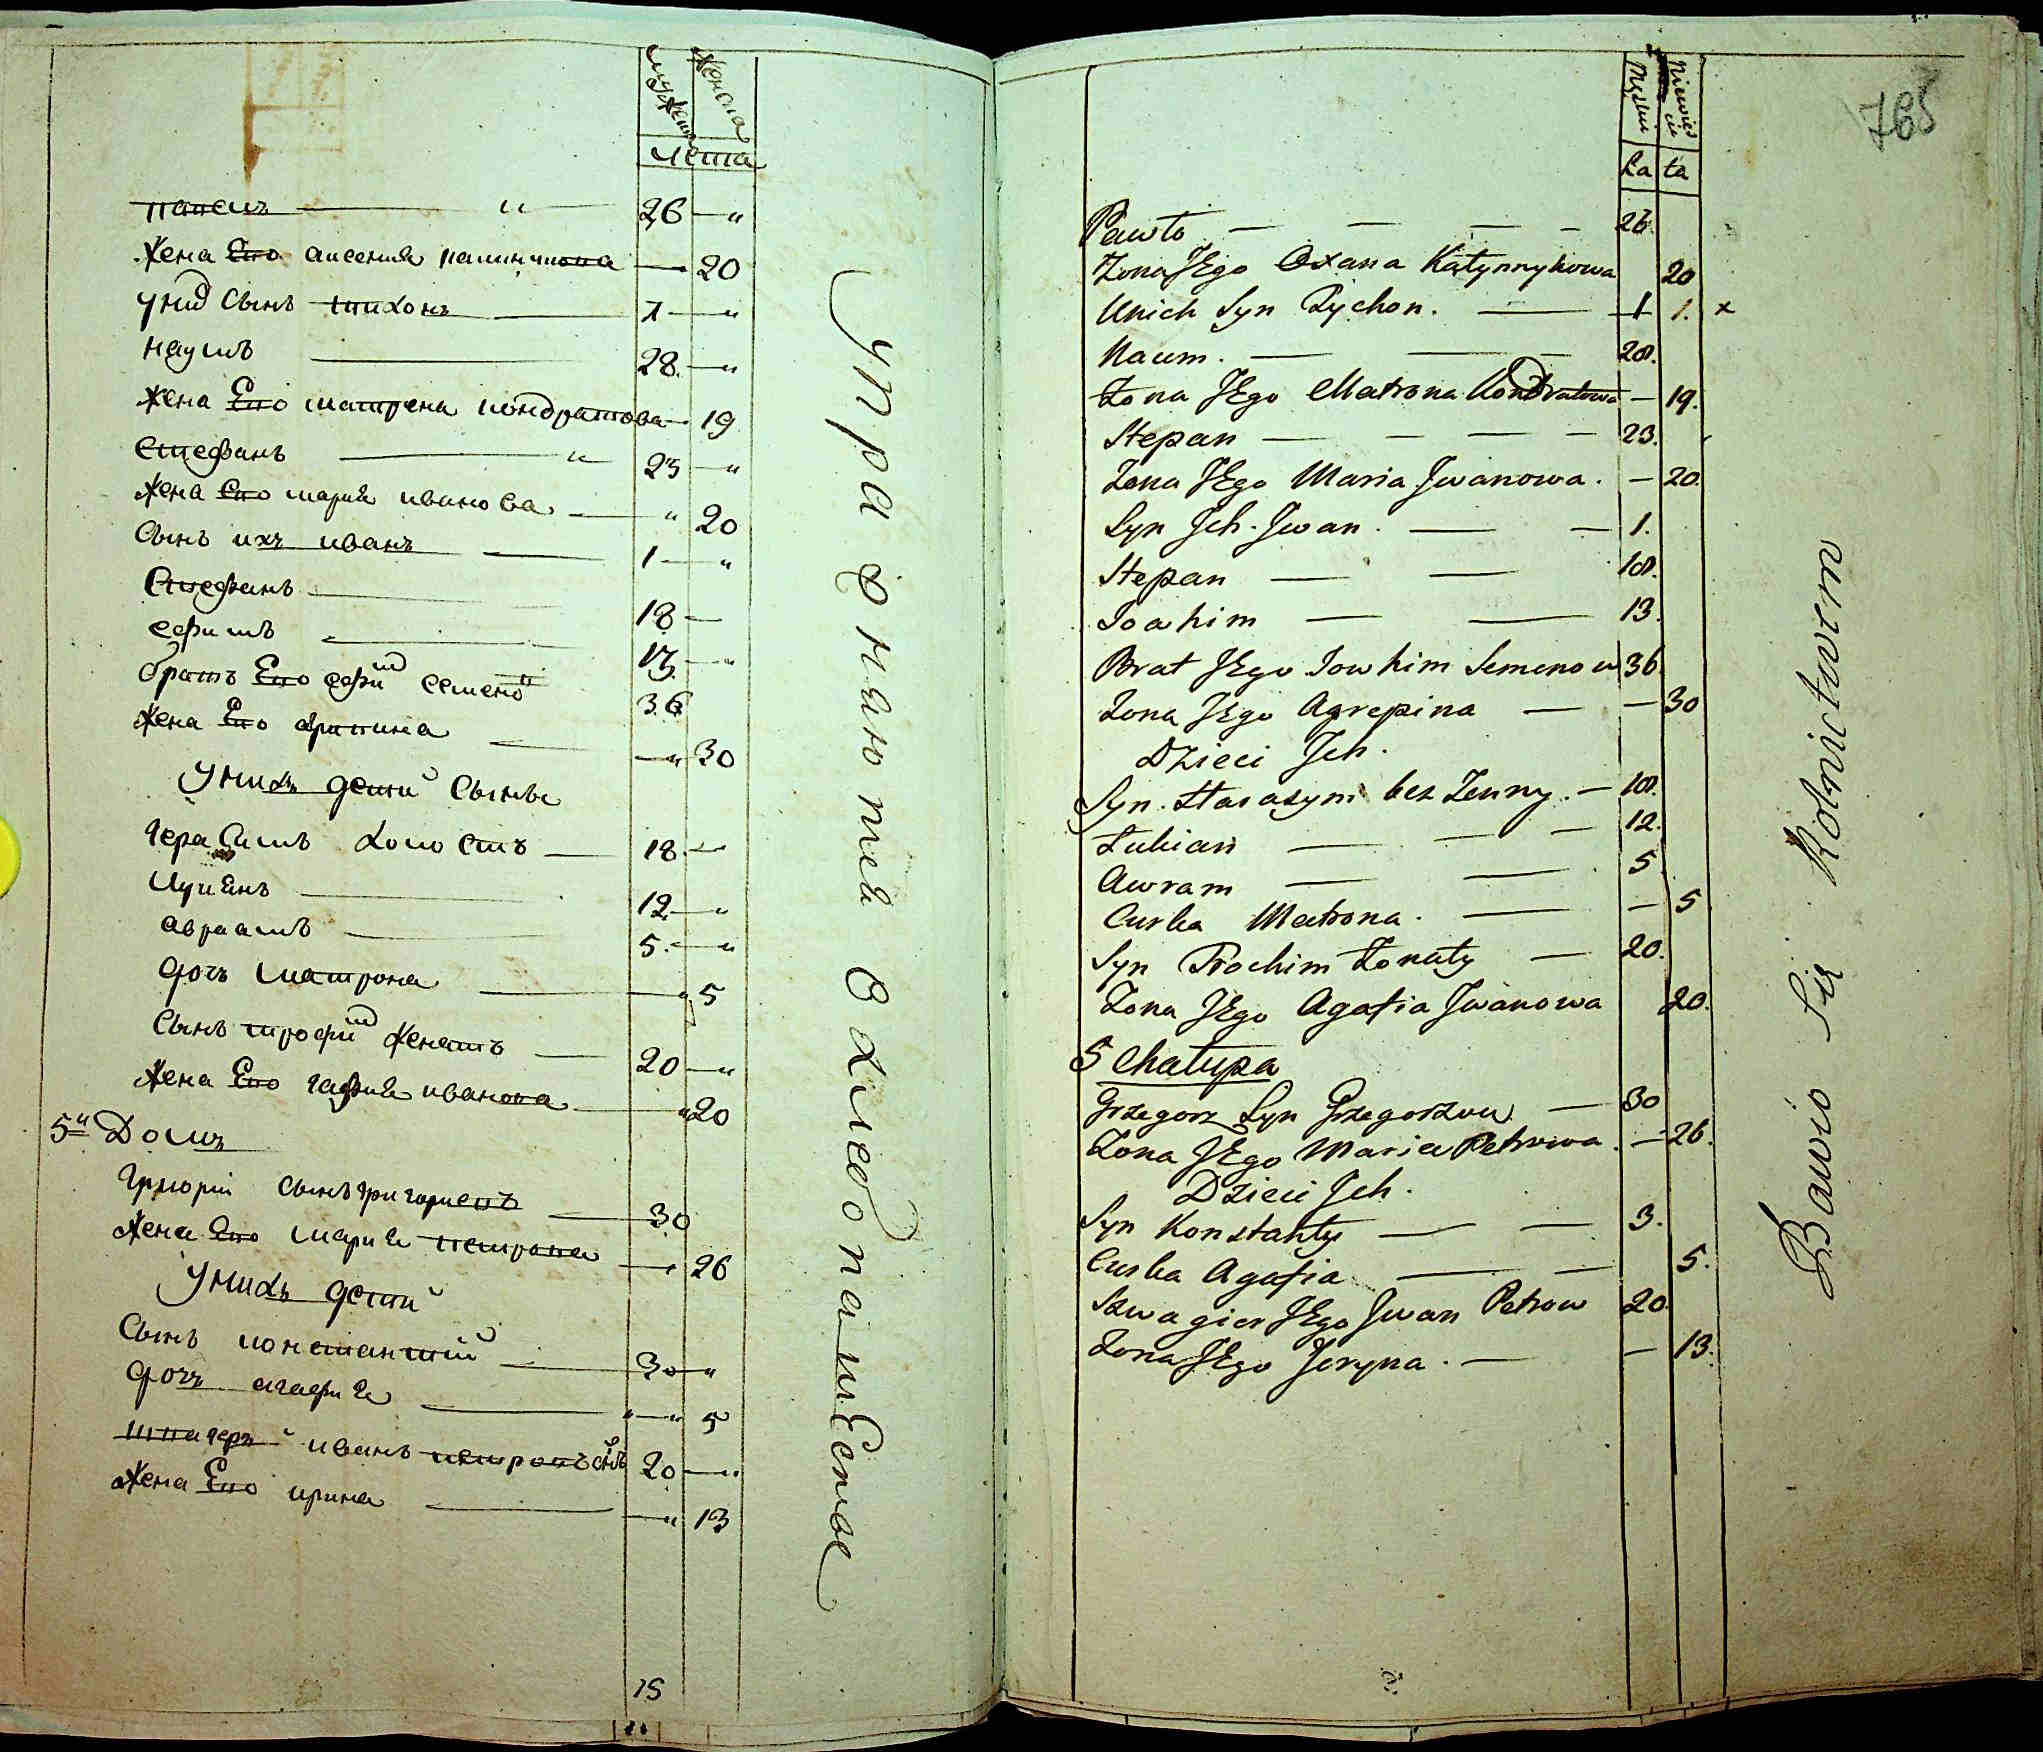 мужеска женска
Лета
павелъ — " — 26 — "
жена Его аксения калинчкова — 20
у них сынъ тихонъ — 1 — "
наумъ — 28. — "
жена Его матрена кондратова — 19
Стефанъ — " 23 — "
жена его мария иванова — " 20
Сынъ ихъ иванъ — 1 — "
Стефанъ — 18 —
ефимъ — 13. — "
братъ Его ефим семенов 36
жена Его агрипина — " 30
У нихъ дети сынъ
герасимъ холостъ — 18. —
лукианъ — 12. — "
авраамъ — 5. — "
дочь матрона — " 5
Сынъ трофим женатъ — 20 — "
жена Его гафия иванова — " 20
5й Домъ
григорий сынъ григориевъ — 30
жена Его мария петрова — 26
У нихъ дети
Сынъ константий — 3 — "
дочь агафия — " — " 5
швагеръ иванъ петровъ снъ 20 — "
жена Его ирина — " 13
15
Упражняются в хлебопашестве
765
Męzkie Niewieście
La ta
Pawło — — — — 26.
Żona JEgo Oxana Kałynnykowa 20
Unich Syn Tychon. — 1 1. x
Naum. — — — 28.
Żona JEgo Matrona Kondratowa — 19.
Stepan — — — — 23.
Żona JEgo Maria Jwanowa. — 20.
Syn Jch. Jwan. — — 1.
Stepan — — 18.
Joahim — — 13.
Brat JEgo Jowhim Semenow 36.
Żona JEgo Agrepina — — 30
Dzieci Jch.
Syn. Harasym bez Żenny. — 18.
Łukian — — — 12.
Awram — — 5.
Curka Matrona. — — 5
Syn Trochim Żonaty — 20.
Żona JEgo Agafia Jwanowa 20.
5 Chałupa
Grzegorz Syn Grzegorzow — 30
Żona JEgo Maria Petrowa. — 26.
Dzieci Jch.
Syn Konstanty — — 3.
Curka Agafia — — 5.
Szwagier JEgo Jwan Petrow 20.
Żona JEgo Jeryna. — — 13.
Bawio Się Rolnictwem